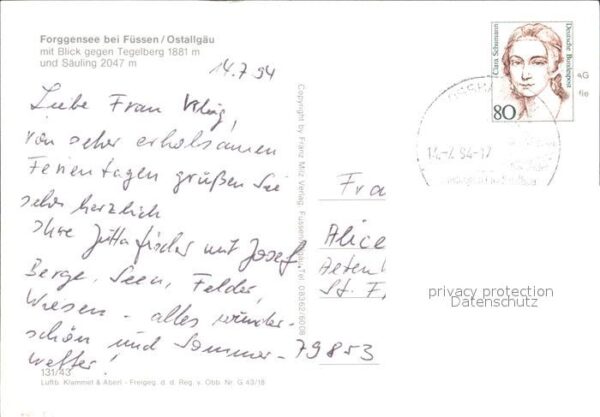 Forggensee bei Füssen/Ostallgäu
mit Blick gegen Tegelberg 1881 m
und Säuling 2047 m
14.7.94
Liebe Frau
von sehr erholsamen
Ferientagen grüßen Sie
sehr herzlich
Ihre Jutta Fischer mit Josef.
Berge, Seen, Felder,
Wiesen - alles wunder-
schön und Sommer-
wetter!
131/43
Luftb. Klammet & Aberl - Freigeg. d. d. Reg. v. Obb. Nr. G 43/18
Copyright by Franz Milz Verlag, Füssen Tel. 08362/6008
Clara Schumann
Deutsche Bundespost
80
94-17
Fra
Alice
St. F
79853
privacy protection
Datenschutz